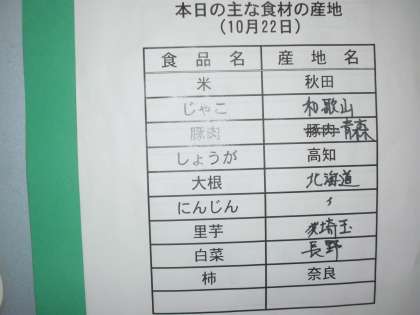 本日の主な食材の産地
(10月22日)
食品名 産地名
米 秋田
じゃこ 和歌山
豚肉 豚肉 青森
しょうが 高知
大根 北海道
にんじん 〃
里芋 埼玉
白菜 長野
柿 奈良